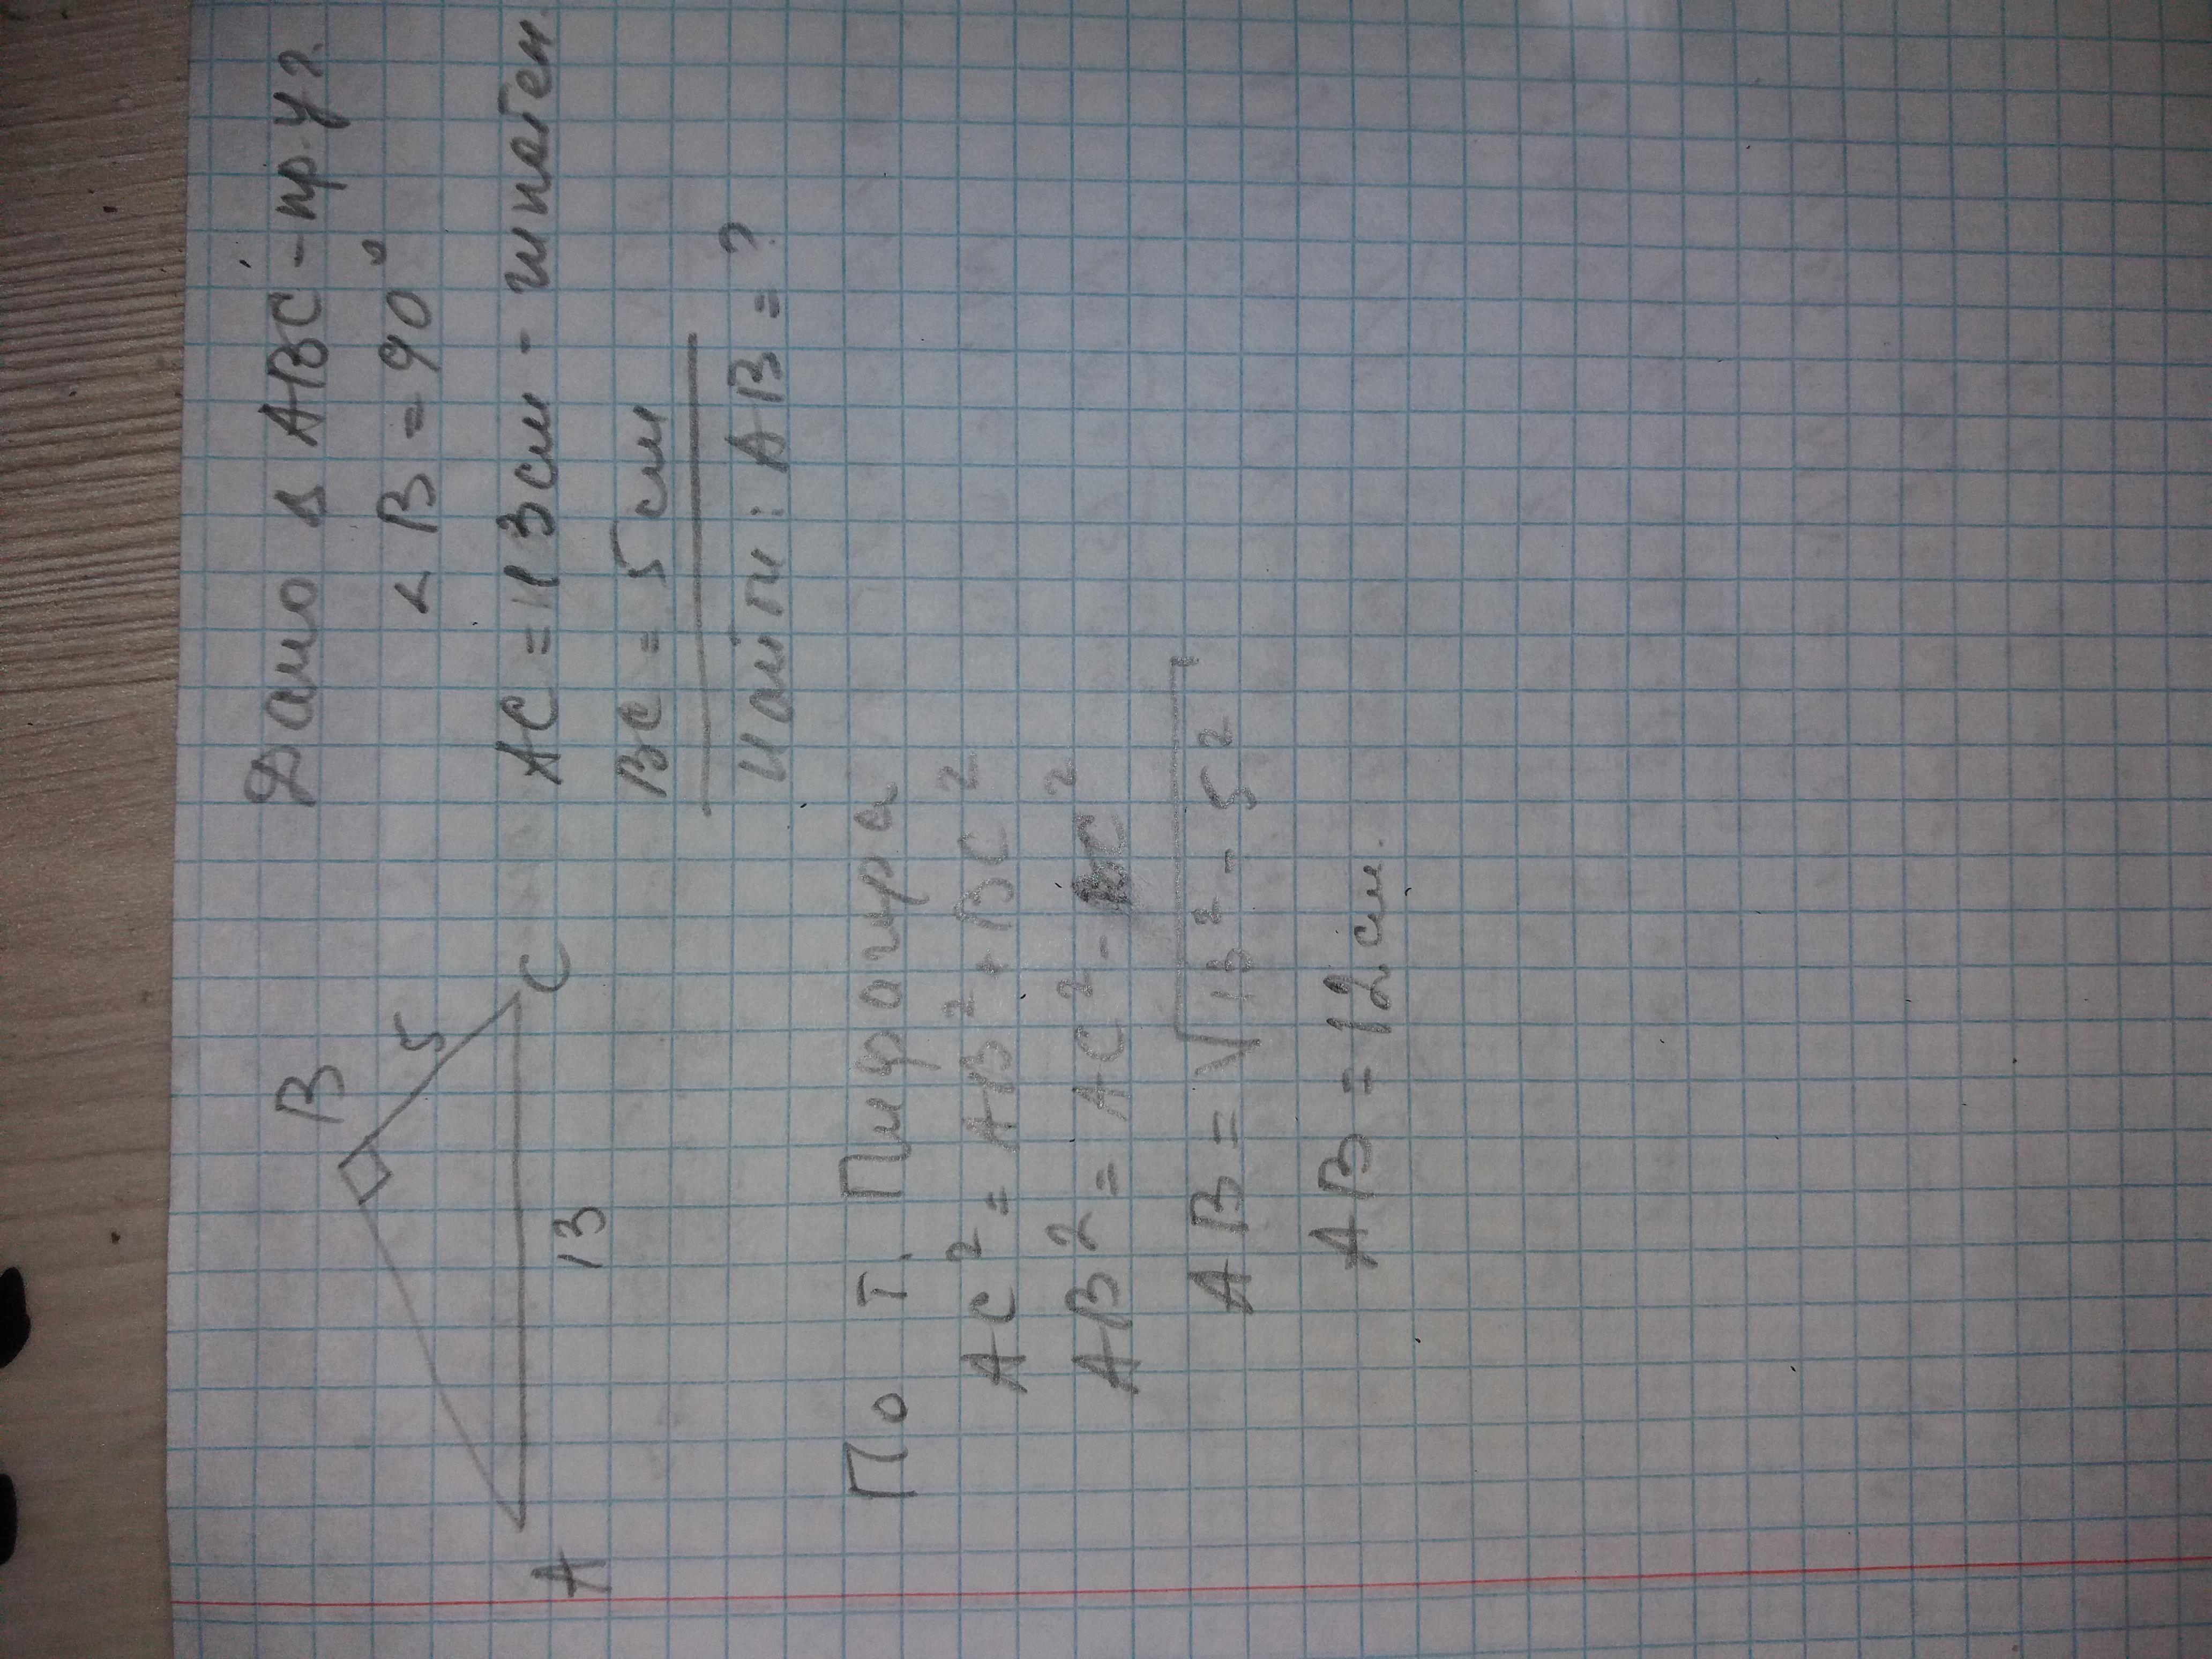 B
5
C
A
13
Дано Δ ABC - пр. уг.
< B = 90°
AC = 13 см - гипотен.
BC = 5 см
Найти: AB = ?
По т. Пифагора
AC² = AB² + BC²
AB² = AC² - BC²
AB = √13² - 5²
AB = 12 см.